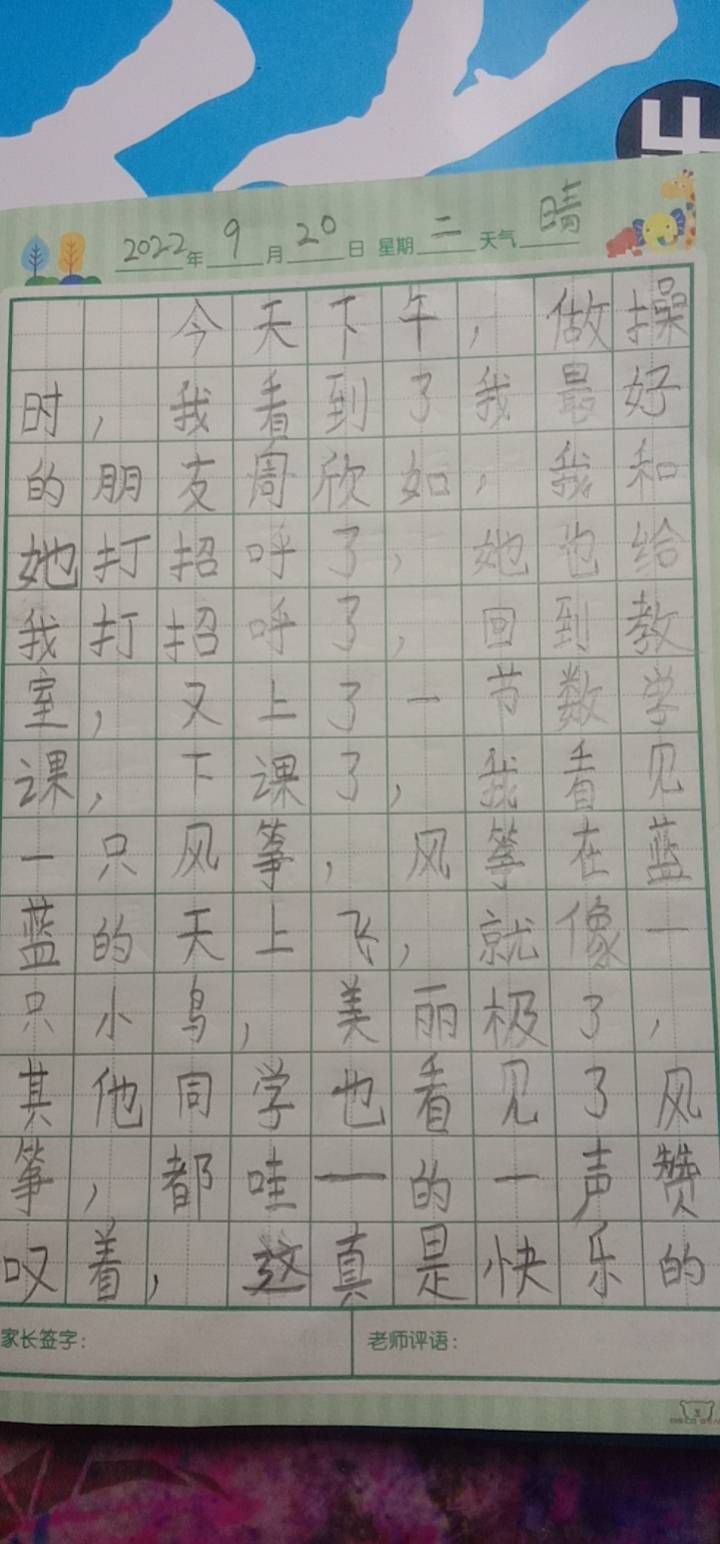 2022年9月20日 星期二 天气晴
今天下午，做操
时，我看到了我最好
的朋友周欣如，我和
她打招呼了，她也给
我打招呼了，回到教
室，又上了一节数学
课，下课了，我看见
一只风筝，风筝在蓝
蓝的天上飞，就像一
只小鸟，美丽极了，
其他同学也看见了风
筝，都哇一的一声赞
叹着，这真是快乐的
家长签字：
老师评语：